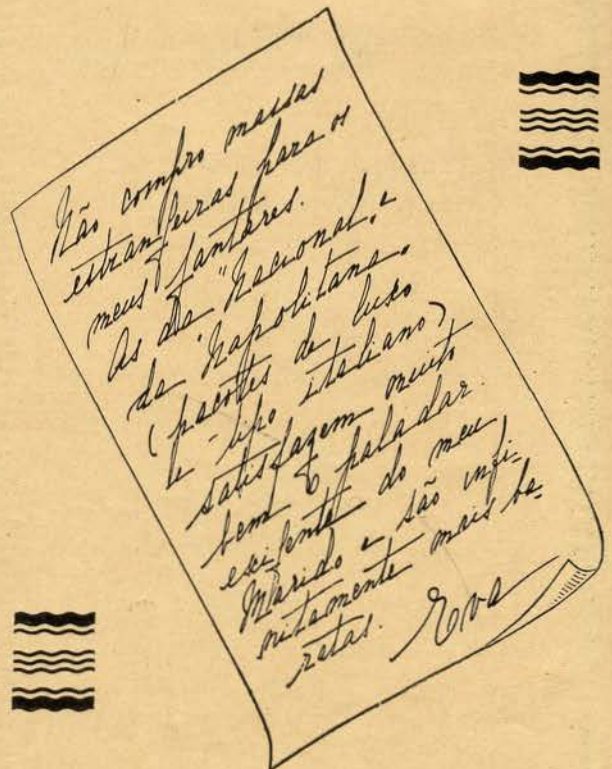 Não compro massas
estrangeiras para os
meus jantares.
As da "Nacional" e
da "Napolitana"
(pacotes de luxo
e tipo italiano)
satisfazem muito
bem o paladar
exigente do meu
Marido e são infi-
nitamente mais ba-
ratas.
Eva